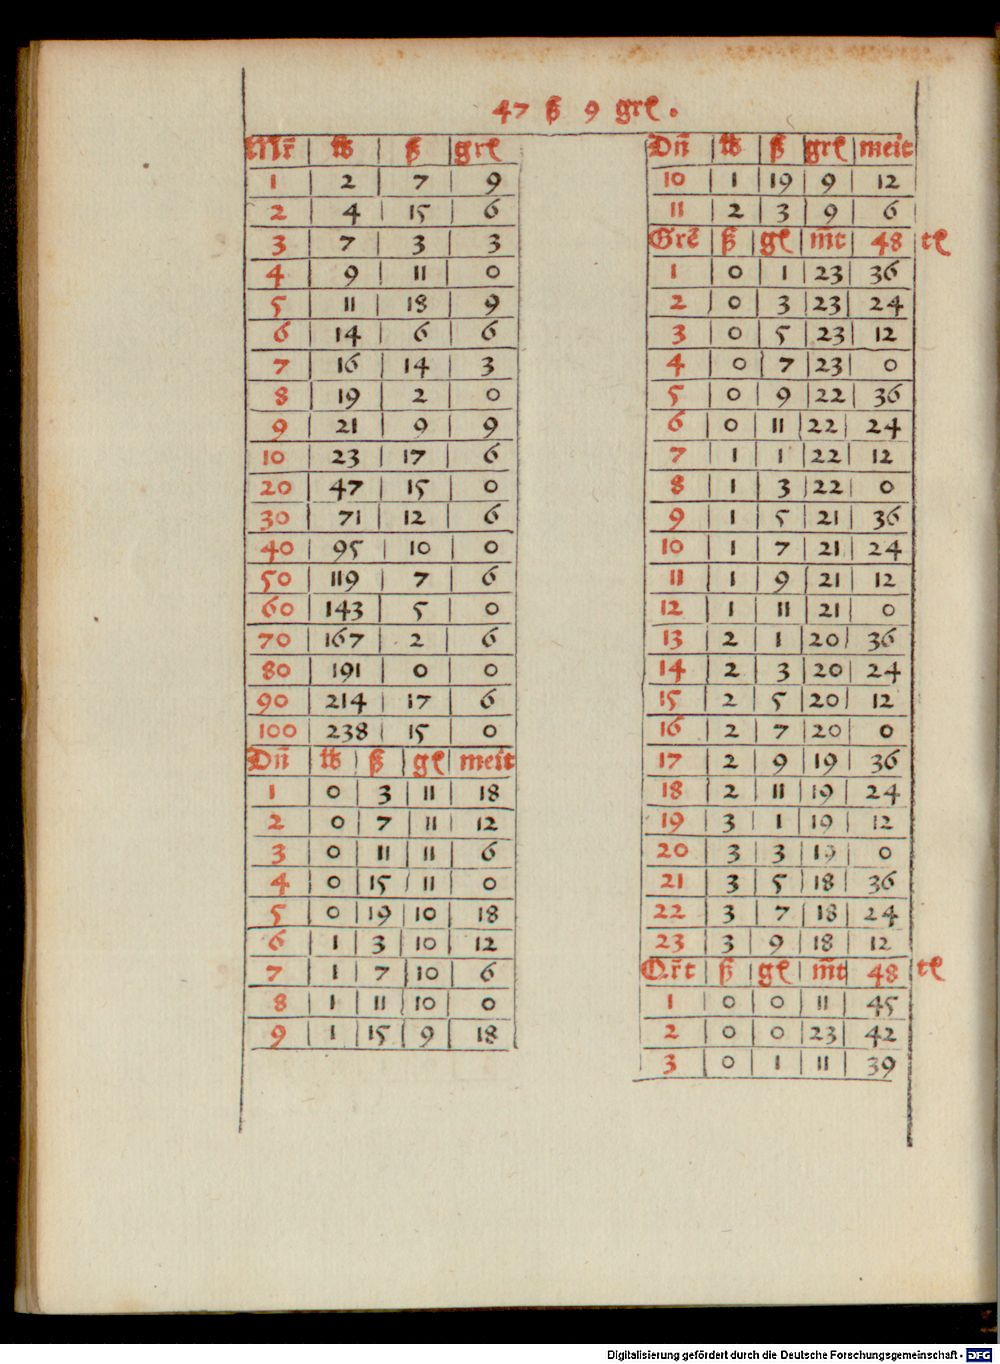 47 ß 9 grꝭ .
Mr̄ | ℔ | ß | grꝭ
1 | 2 | 7 | 9
2 | 4 | 15 | 6
3 | 7 | 3 | 3
4 | 9 | 11 | 0
5 | 11 | 18 | 9
6 | 14 | 6 | 6
7 | 16 | 14 | 3
8 | 19 | 2 | 0
9 | 21 | 9 | 9
10 | 23 | 17 | 6
20 | 47 | 15 | 0
30 | 71 | 12 | 6
40 | 95 | 10 | 0
50 | 119 | 7 | 6
60 | 143 | 5 | 0
70 | 167 | 2 | 6
80 | 191 | 0 | 0
90 | 214 | 17 | 6
100 | 238 | 15 | 0
Dn̄ | ℔ | ß | gꝭ | meit
1 | 0 | 3 | 11 | 18
2 | 0 | 7 | 11 | 12
3 | 0 | 11 | 11 | 6
4 | 0 | 15 | 11 | 0
5 | 0 | 19 | 10 | 18
6 | 1 | 3 | 10 | 12
7 | 1 | 7 | 10 | 6
8 | 1 | 11 | 10 | 0
9 | 1 | 15 | 9 | 18
Dn̄ | ℔ | ß | grꝭ | meit
10 | 1 | 19 | 9 | 12
11 | 2 | 3 | 9 | 6
Grē | ß | gꝭ | m̄t | 48 | tꝭ
1 | 0 | 1 | 23 | 36
2 | 0 | 3 | 23 | 24
3 | 0 | 5 | 23 | 12
4 | 0 | 7 | 23 | 0
5 | 0 | 9 | 22 | 36
6 | 0 | 11 | 22 | 24
7 | 1 | 1 | 22 | 12
8 | 1 | 3 | 22 | 0
9 | 1 | 5 | 21 | 36
10 | 1 | 7 | 21 | 24
11 | 1 | 9 | 21 | 12
12 | 1 | 11 | 21 | 0
13 | 2 | 1 | 20 | 36
14 | 2 | 3 | 20 | 24
15 | 2 | 5 | 20 | 12
16 | 2 | 7 | 20 | 0
17 | 2 | 9 | 19 | 36
18 | 2 | 11 | 19 | 24
19 | 3 | 1 | 19 | 12
20 | 3 | 3 | 19 | 0
21 | 3 | 5 | 18 | 36
22 | 3 | 7 | 18 | 24
23 | 3 | 9 | 18 | 12
Q.r̄t | ß | gꝭ | m̄t | 48 | tꝭ
1 | 0 | 0 | 11 | 45
2 | 0 | 0 | 23 | 42
3 | 0 | 1 | 11 | 39
Digitalisierung gefördert durch die Deutsche Forschungsgemeinschaft - DFG